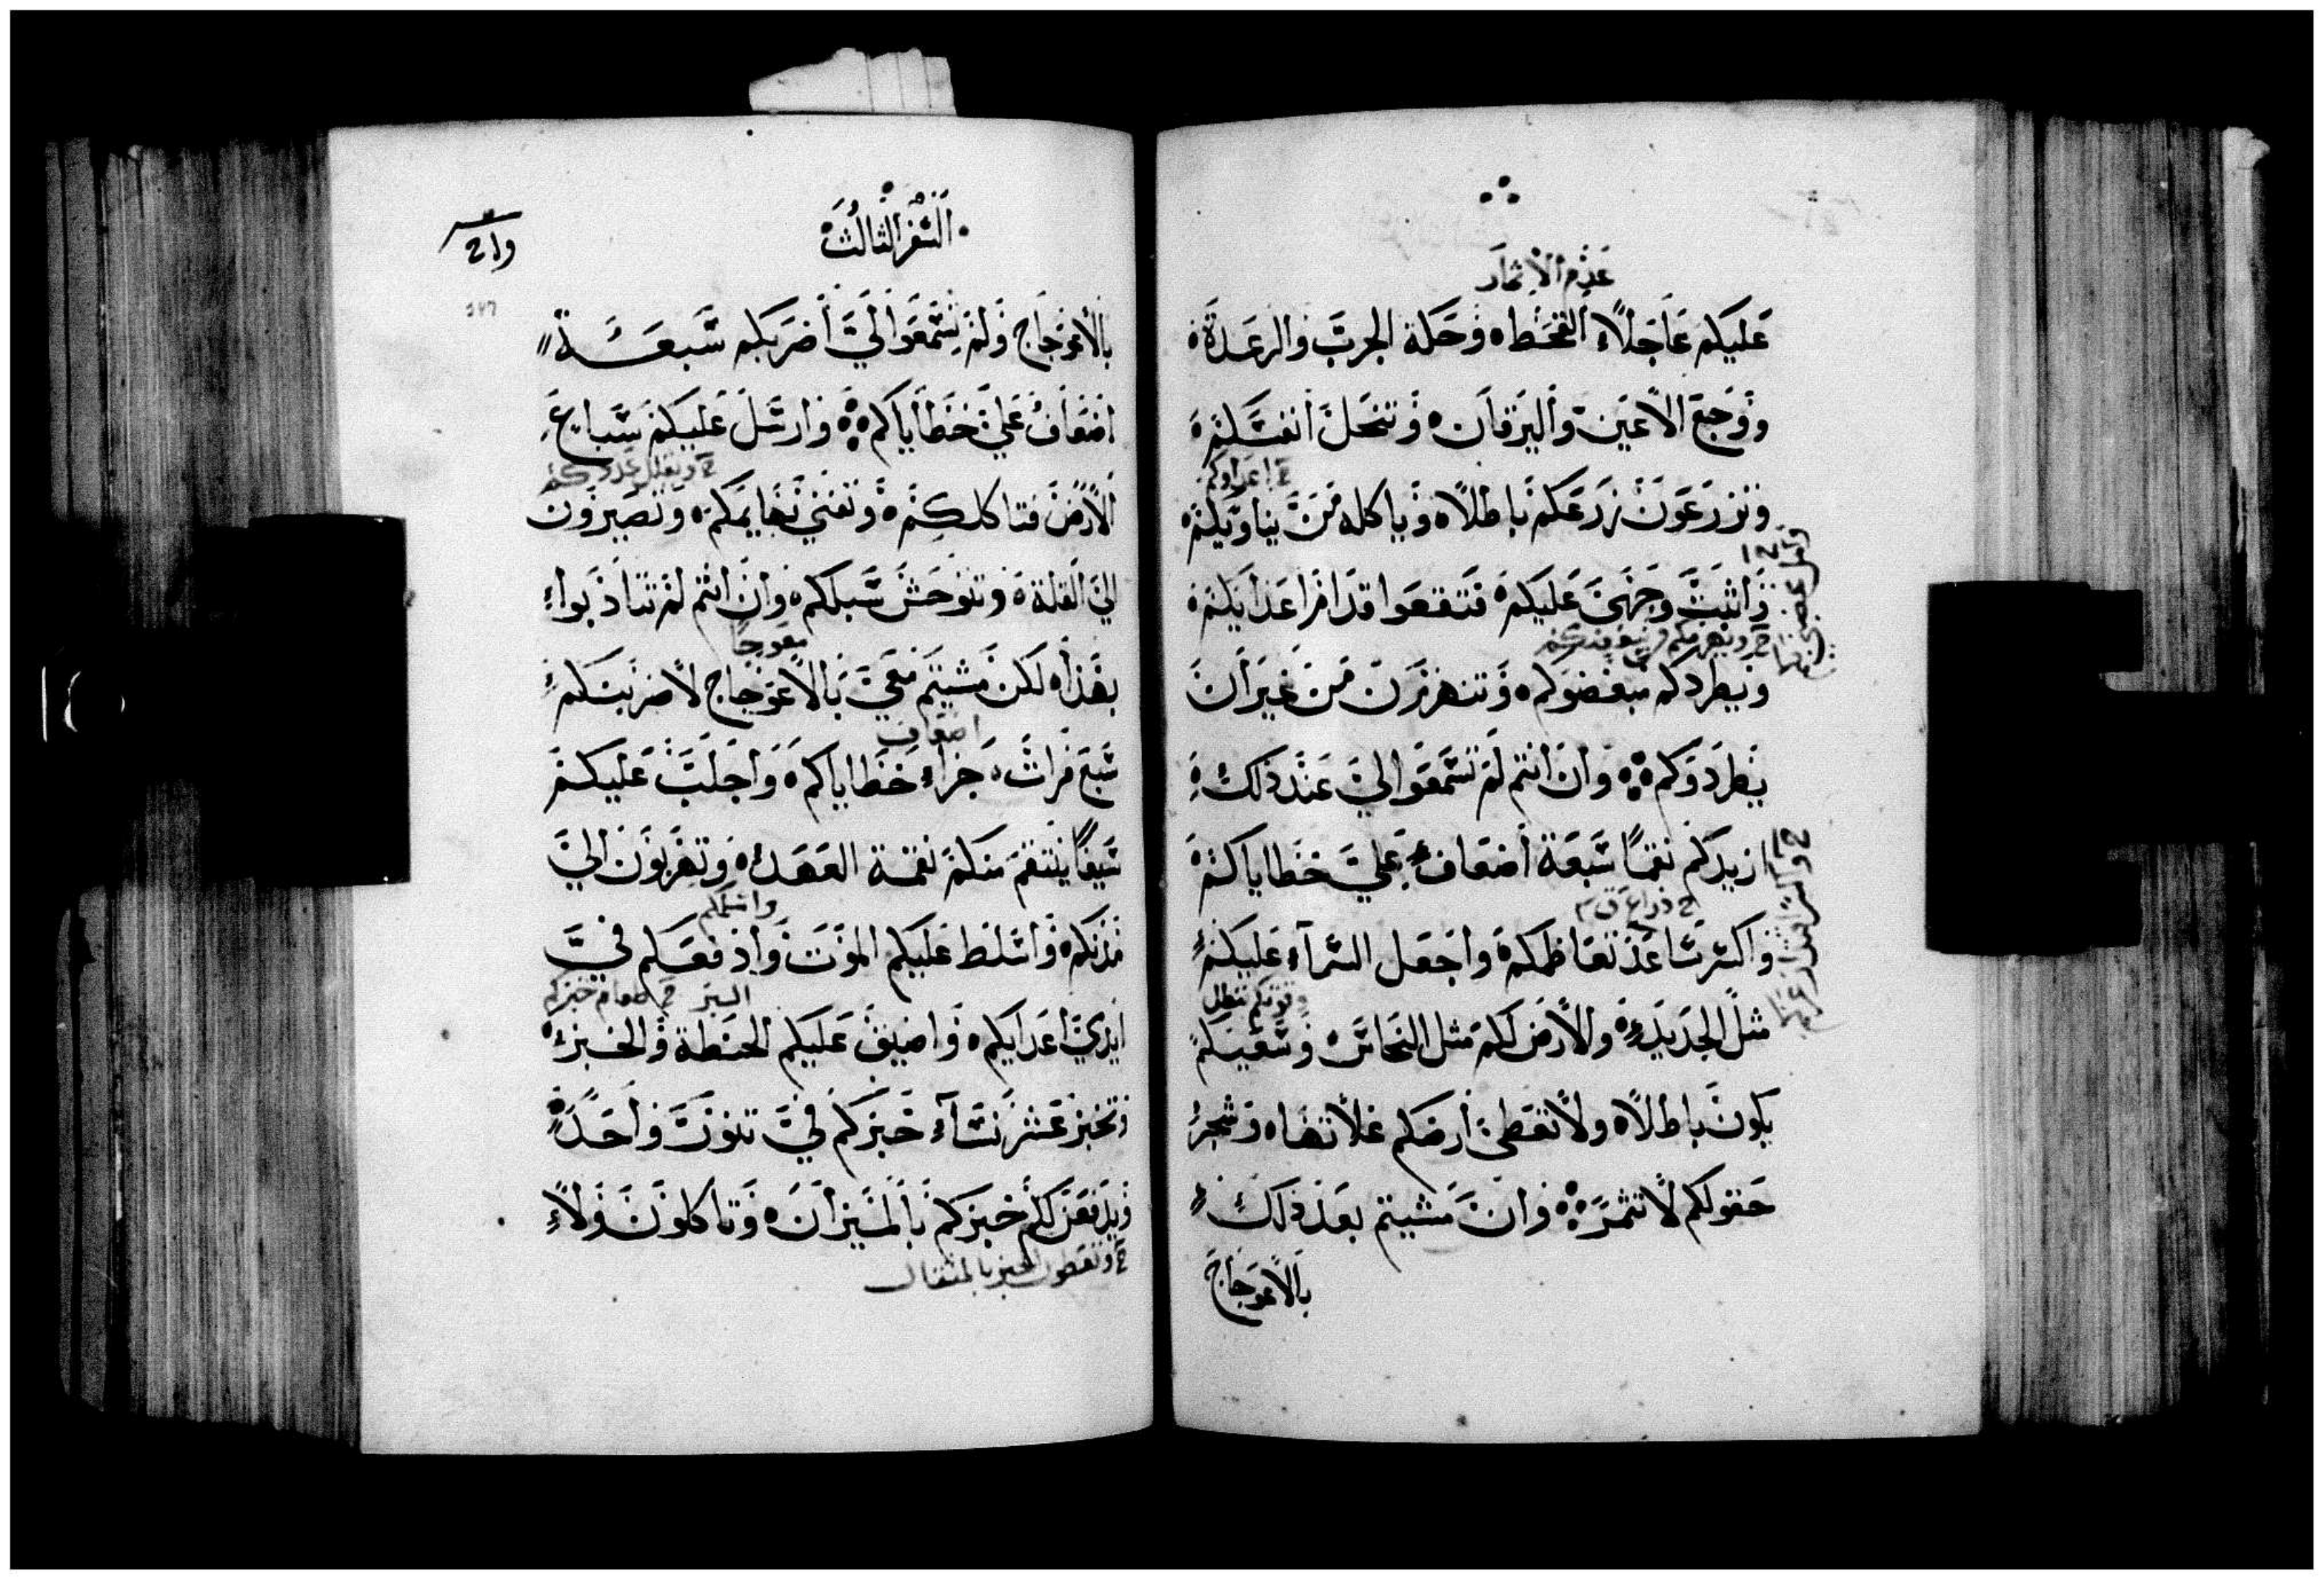 عدم الاثمار
عليكم عاجلاً القحط وحكة الجرب والرعدة
ووجع الاعين واليرقان وتنحل انفسكم
ح اعداوكم
وتزرعون زرعكم باطلاً وياكله من يناويكم
واثبت وجهي عليكم فتقعوا قدام اعدايكم
ويطردكم مبغضوكم وتنهزمون من غير ان
يطردوكم وان انتم لم تسمعوا الي عند ذلك
ازيدكم نقماً سبعة اضعاف علي خطاياكم
ح ذراع ق
واكسر ساعد تعاظمكم واجعل السماء عليكم
مثل الحديد والارض لكم مثل النحاس وسعيكم
يكون باطلاً ولا تعطي ارضكم غلاتها وشجر
حقولكم لا تثمر وان مشيتم بعد ذلك
بالاعوجاج
السفر الثالث
بالاعوجاج ولم تسمعوا لي اضربكم سبعة
اضعاف علي خطاياكم وارسل عليكم سباع
ح ويقلل عددكم
الارض فتاكلكم وتفني بهايمكم وتصيرون
الي القلة وتتوحش سبلكم وان انتم لم تتادبوا
معوجاً
بهذا لكن مشيتم معي بالاعوجاج لاضربنكم
اضعاف
سبع مرات جزاء خطاياكم واجلب عليكم
سيفاً ينتقم منكم نقمة العهد وتهربون الي
واسلمكم
مدنكم واسلط عليكم الموت وادفعكم في
البر ح طعام خبزكم
ايدي اعدايكم واضيق عليكم الحنطة والخبز
وتخبز عشر نساء خبزكم في تنور واحد
ويدفعن لكم خبزكم بالميزان وتاكلون ولا
ح وتعطون الخبز بالمثقال